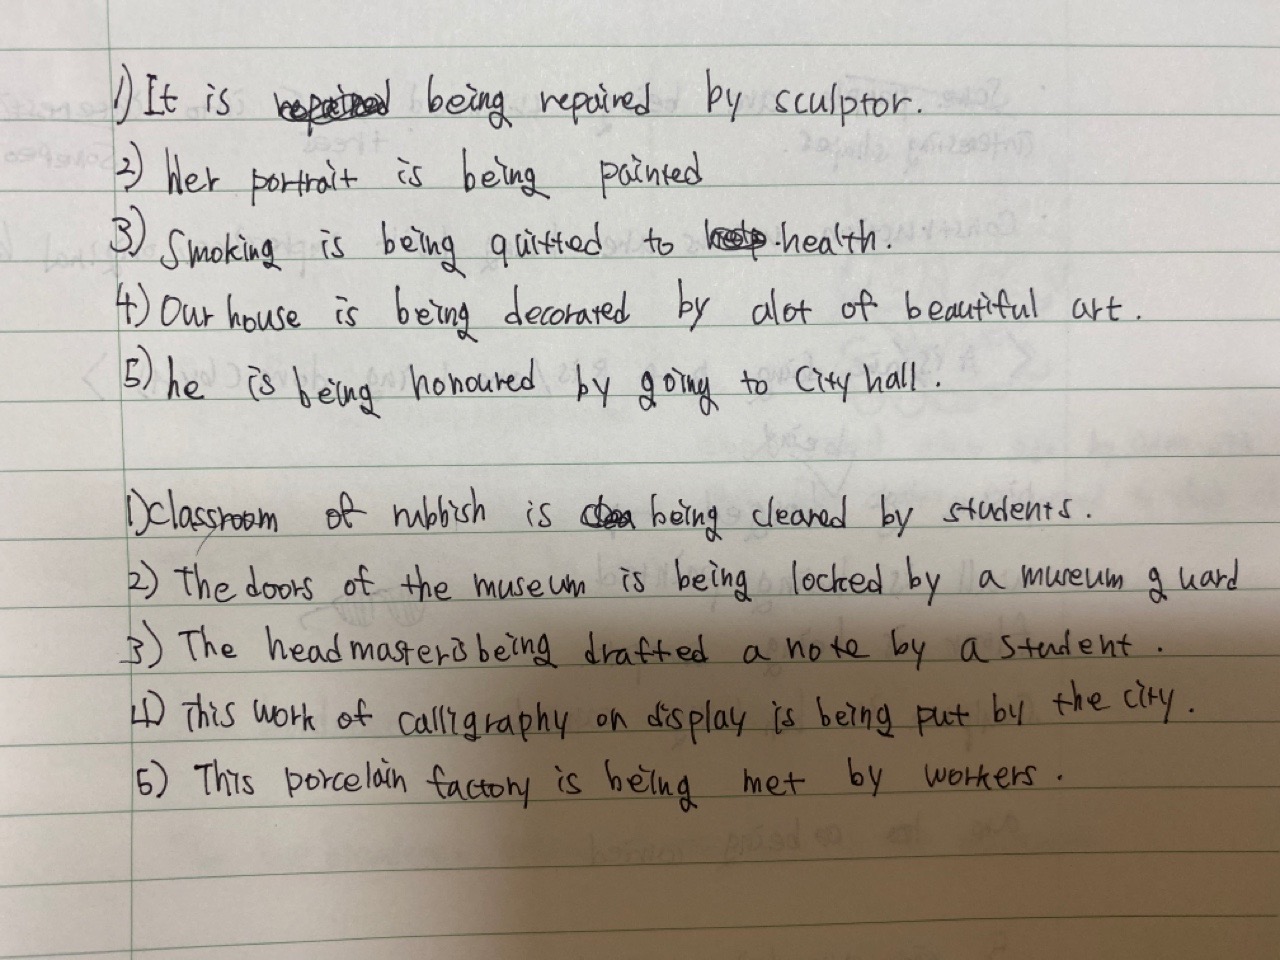 1) It is being repaired by sculptor.
2) Her portrait is being painted
3) Smoking is being quitted to health.
4) Our house is being decorated by alot of beautiful art.
5) he is being honoured by going to City hall.
1) classroom of rubbish is being cleared by students.
2) The doors of the museum is being locked by a museum guard
3) The headmaster is being drafted a note by a student.
4) This work of calligraphy on display is being put by the city.
5) This porcelain factory is being met by workers.